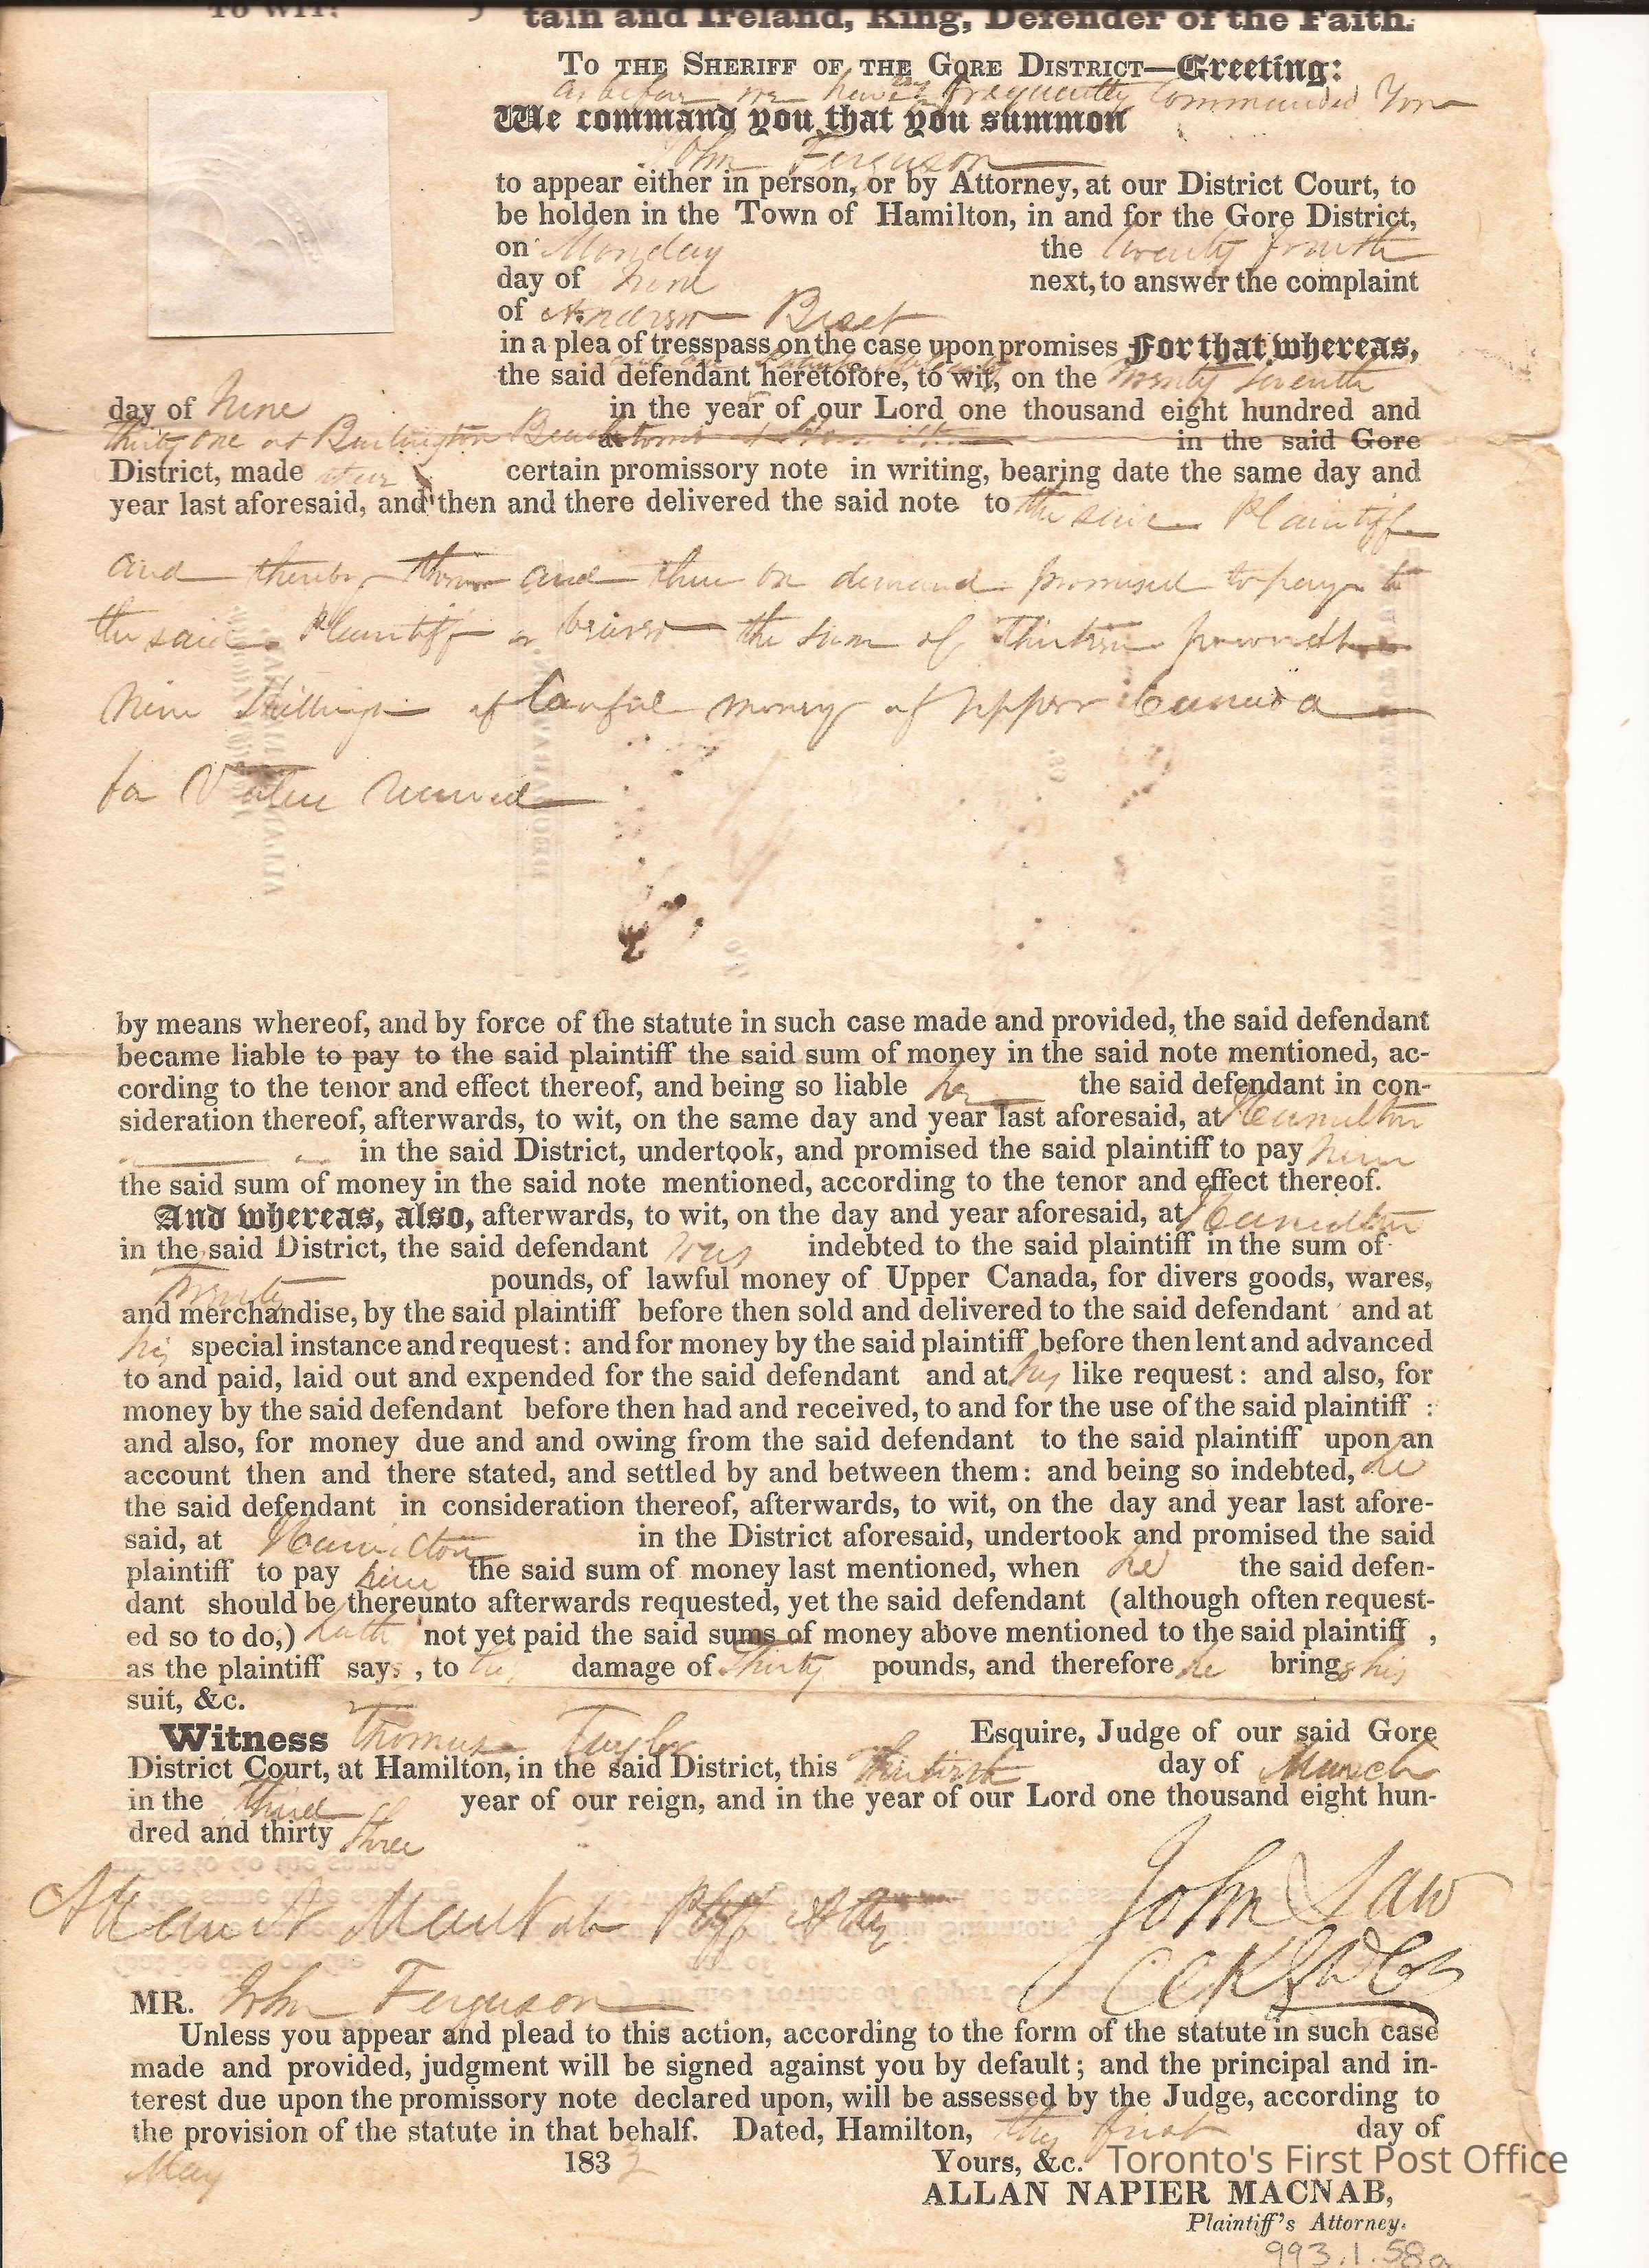 TO WIT:
tain and Ireland, King, Defender of the Faith.
TO THE SHERIFF OF THE GORE DISTRICT—Greeting:
as before we have frequently Commanded You
We command you that you summon
John Ferguson
to appear either in person, or by Attorney, at our District Court, to
be holden in the Town of Hamilton, in and for the Gore District,
on Monday the twenty fourth
day of June next, to answer the complaint
of Andrew Biset
in a plea of tresspass on the case upon promises For that whereas,
the said defendant heretofore, to wit, on the twenty seventh
day of June in the year of our Lord one thousand eight hundred and
thirty one at Burlington Beach at in the said Gore
District, made certain promissory note in writing, bearing date the same day and
year last aforesaid, and then and there delivered the said note to the said Plaintiff
and thereby then and there on demand promised to pay to
the said Plaintiff or bearer the sum of Thirteen pounds
Nine Shillings of lawful money of Upper Canada
for Value received
by means whereof, and by force of the statute in such case made and provided, the said defendant
became liable to pay to the said plaintiff the said sum of money in the said note mentioned, ac-
cording to the tenor and effect thereof, and being so liable he the said defendant in con-
sideration thereof, afterwards, to wit, on the same day and year last aforesaid, at Hamilton
in the said District, undertook, and promised the said plaintiff to pay him
the said sum of money in the said note mentioned, according to the tenor and effect thereof.
And whereas, also, afterwards, to wit, on the day and year aforesaid, at Hamilton
in the said District, the said defendant was indebted to the said plaintiff in the sum of
Twenty pounds, of lawful money of Upper Canada, for divers goods, wares,
and merchandise, by the said plaintiff before then sold and delivered to the said defendant and at
his special instance and request: and for money by the said plaintiff before then lent and advanced
to and paid, laid out and expended for the said defendant and at his like request: and also, for
money by the said defendant before then had and received, to and for the use of the said plaintiff :
and also, for money due and and owing from the said defendant to the said plaintiff upon an
account then and there stated, and settled by and between them: and being so indebted, he
the said defendant in consideration thereof, afterwards, to wit, on the day and year last afore-
said, at Hamilton in the District aforesaid, undertook and promised the said
plaintiff to pay him the said sum of money last mentioned, when he the said defen-
dant should be thereunto afterwards requested, yet the said defendant (although often request-
ed so to do,) hath not yet paid the said sums of money above mentioned to the said plaintiff ,
as the plaintiff says , to his damage of Thirty pounds, and therefore he brings his
suit, &c.
Witness Thomas Taylor Esquire, Judge of our said Gore
District Court, at Hamilton, in the said District, this day of March
in the third year of our reign, and in the year of our Lord one thousand eight hun-
dred and thirty three
Allan N MacNab Plffs Atty
John Law
MR. John Ferguson
Unless you appear and plead to this action, according to the form of the statute in such case
made and provided, judgment will be signed against you by default; and the principal and in-
terest due upon the promissory note declared upon, will be assessed by the Judge, according to
the provision of the statute in that behalf. Dated, Hamilton, this first day of
May 1833 Yours, &c.
Toronto's First Post Office
ALLAN NAPIER MACNAB,
Plaintiff's Attorney.
993.1.58a